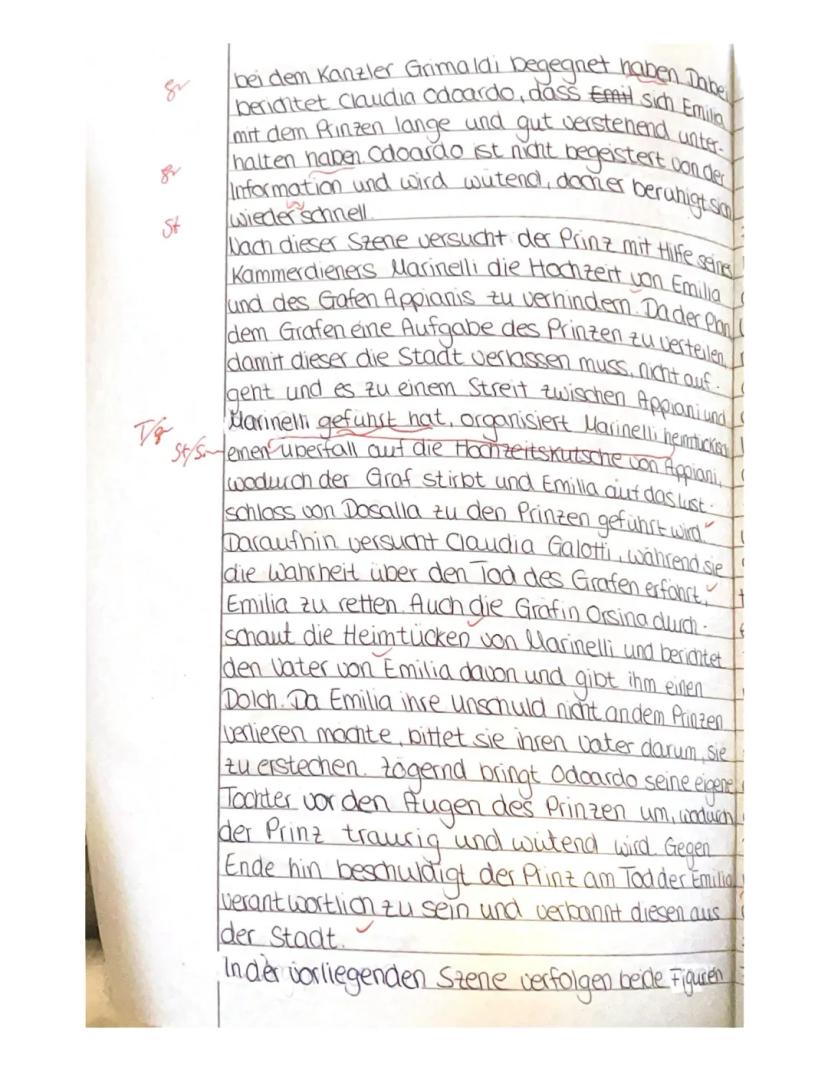 bei dem Kanzler Grimaldi begegnet haben. Dabei
gr
berichtet Claudia Odoardo, dass Emil sich Emilia
mit dem Prinzen lange und gut verstehend unter-
halten haben. Odoardo ist nicht begeistert von der
gr
Information und wird wütend, doch er beruhigt sich
St
wieder schnell.
Nach dieser Szene versucht der Prinz mit Hilfe seines
Kammerdieners Marinelli die Hochzeit von Emilia
und des Gafen Appianis zu verhindern. Da der Plan
dem Grafen eine Aufgabe des Prinzen zu verteilen,
damit dieser die Stadt verlassen muss, nicht auf-
geht und es zu einem Streit zwischen Appiani und
T/gr
Marinelli geführt hat, organisiert Marinelli heimtückisch
St/Sn
einen überfall auf die Hochzeitskutsche von Appiani,
wodurch der Graf stirbt und Emilia auf das Lust-
schloss von Dosalla zu den Prinzen geführt wird.
Daraufhin versucht Claudia Galotti, während sie
die Wahrheit über den Tod des Grafen erfährt,
Emilia zu retten. Auch die Gräfin Orsina durch-
schaut die Heimtücken von Marinelli und berichtet
den Vater von Emilia davon und gibt ihm einen
Dolch. Da Emilia ihre Unschuld nicht an dem Prinzen
verlieren möchte, bittet sie ihren Vater darum, sie
zu erstechen. Zögernd bringt Odoardo seine eigene
Tochter vor den Augen des Prinzen um, wodurch
der Prinz traurig und wütend wird. Gegen
Ende hin beschuldigt der Prinz am Tod der Emilia
verantwortlich zu sein und verbannt diesen aus
der Stadt.
In der vorliegenden Szene verfolgen beide Figuren